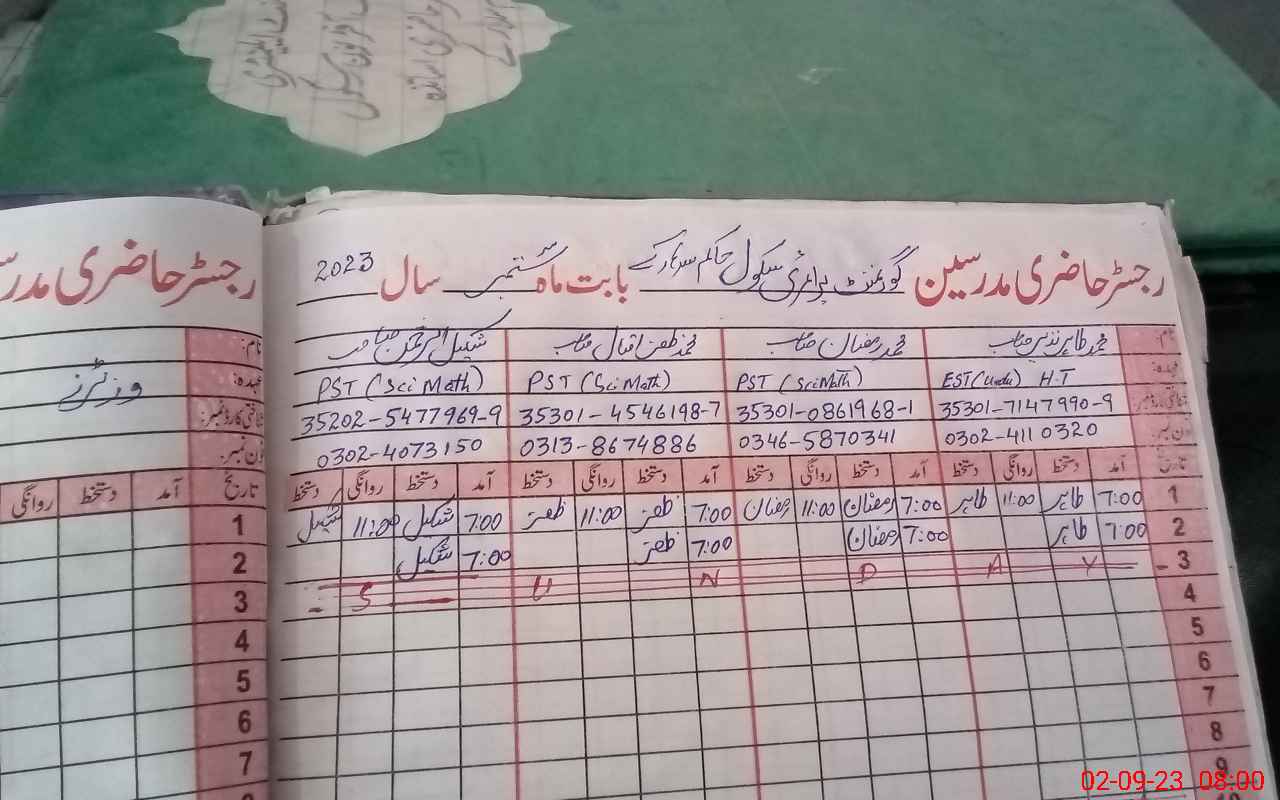 رجسٹر حاضری مدرسین گورنمنٹ پرائمری سکول حاکم بابت ماہ ستمبر سال 2023
نام: محمد طاہر صاحب محمد رمضان صاحب محمد ظفر اقبال صاحب شکیل صاحب
عہدہ: EST (Urdu) H.T PST (Sci Math) PST (Sci Math) PST (Sci Math)
شناختی کارڈ نمبر: 35301-7147990-9 35301-0861968-1 35301-4546198-7 35202-5477969-9
فون نمبر: 0302-4110320 0346-5870341 0313-8674886 0302-4073150
تاریخ آمد دستخط روانگی دستخط آمد دستخط روانگی دستخط آمد دستخط روانگی دستخط آمد دستخط روانگی دستخط
1 7:00 طاہر 11:00 طاہر 7:00 رمضان 11:00 رمضان 7:00 ظفر 11:00 ظفر 7:00 شکیل 11:00 شکیل
2 7:00 طاہر 7:00 رمضان 7:00 ظفر 7:00 شکیل
3 S U N D A Y
4
5
6
7
8
9
10
رجسٹر حاضری مدرس
نام:
عہدہ: وزیٹرز
شناختی کارڈ نمبر:
فون نمبر:
تاریخ آمد دستخط روانگی
1
2
3
4
5
6
7
02-09-23 08:00